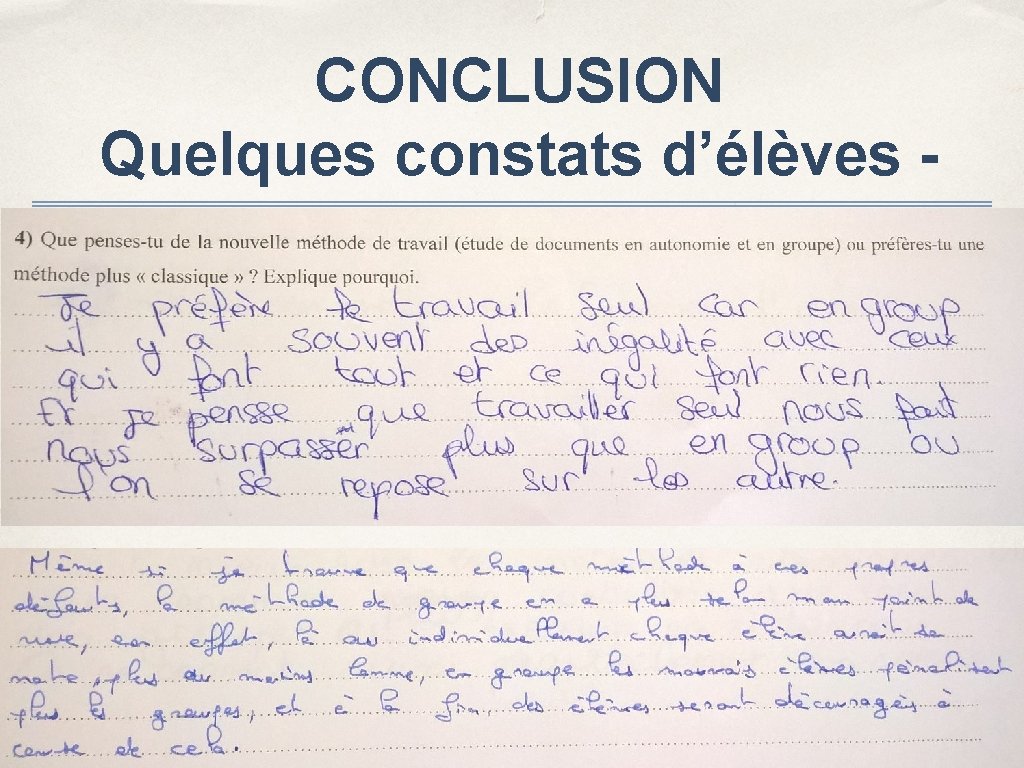 CONCLUSION
Quelques constats d’élèves -
4) Que penses-tu de la nouvelle méthode de travail (étude de documents en autonomie et en groupe) ou préfères-tu une
méthode plus « classique » ? Explique pourquoi.
Je préfère le travail seul car en group
il y a souvent des inégalité avec ceux
qui font tout et ce qui font rien.
Et je pensse que travailler seul nous fait
nous surpasser plus que en group ou
l'on se repose sur les autre.
Même si je trouve que chaque méthode à ces propres
défauts, la méthode de groupe en a plus selon mon point de
vue, en effet, là ou individuellement chaque élève aurait sa
note, plus ou moins bonne, en groupe les mauvais élèves pénalisent
plus les groupes, et à la fin, des élèves seront découragés à
cause de cela.